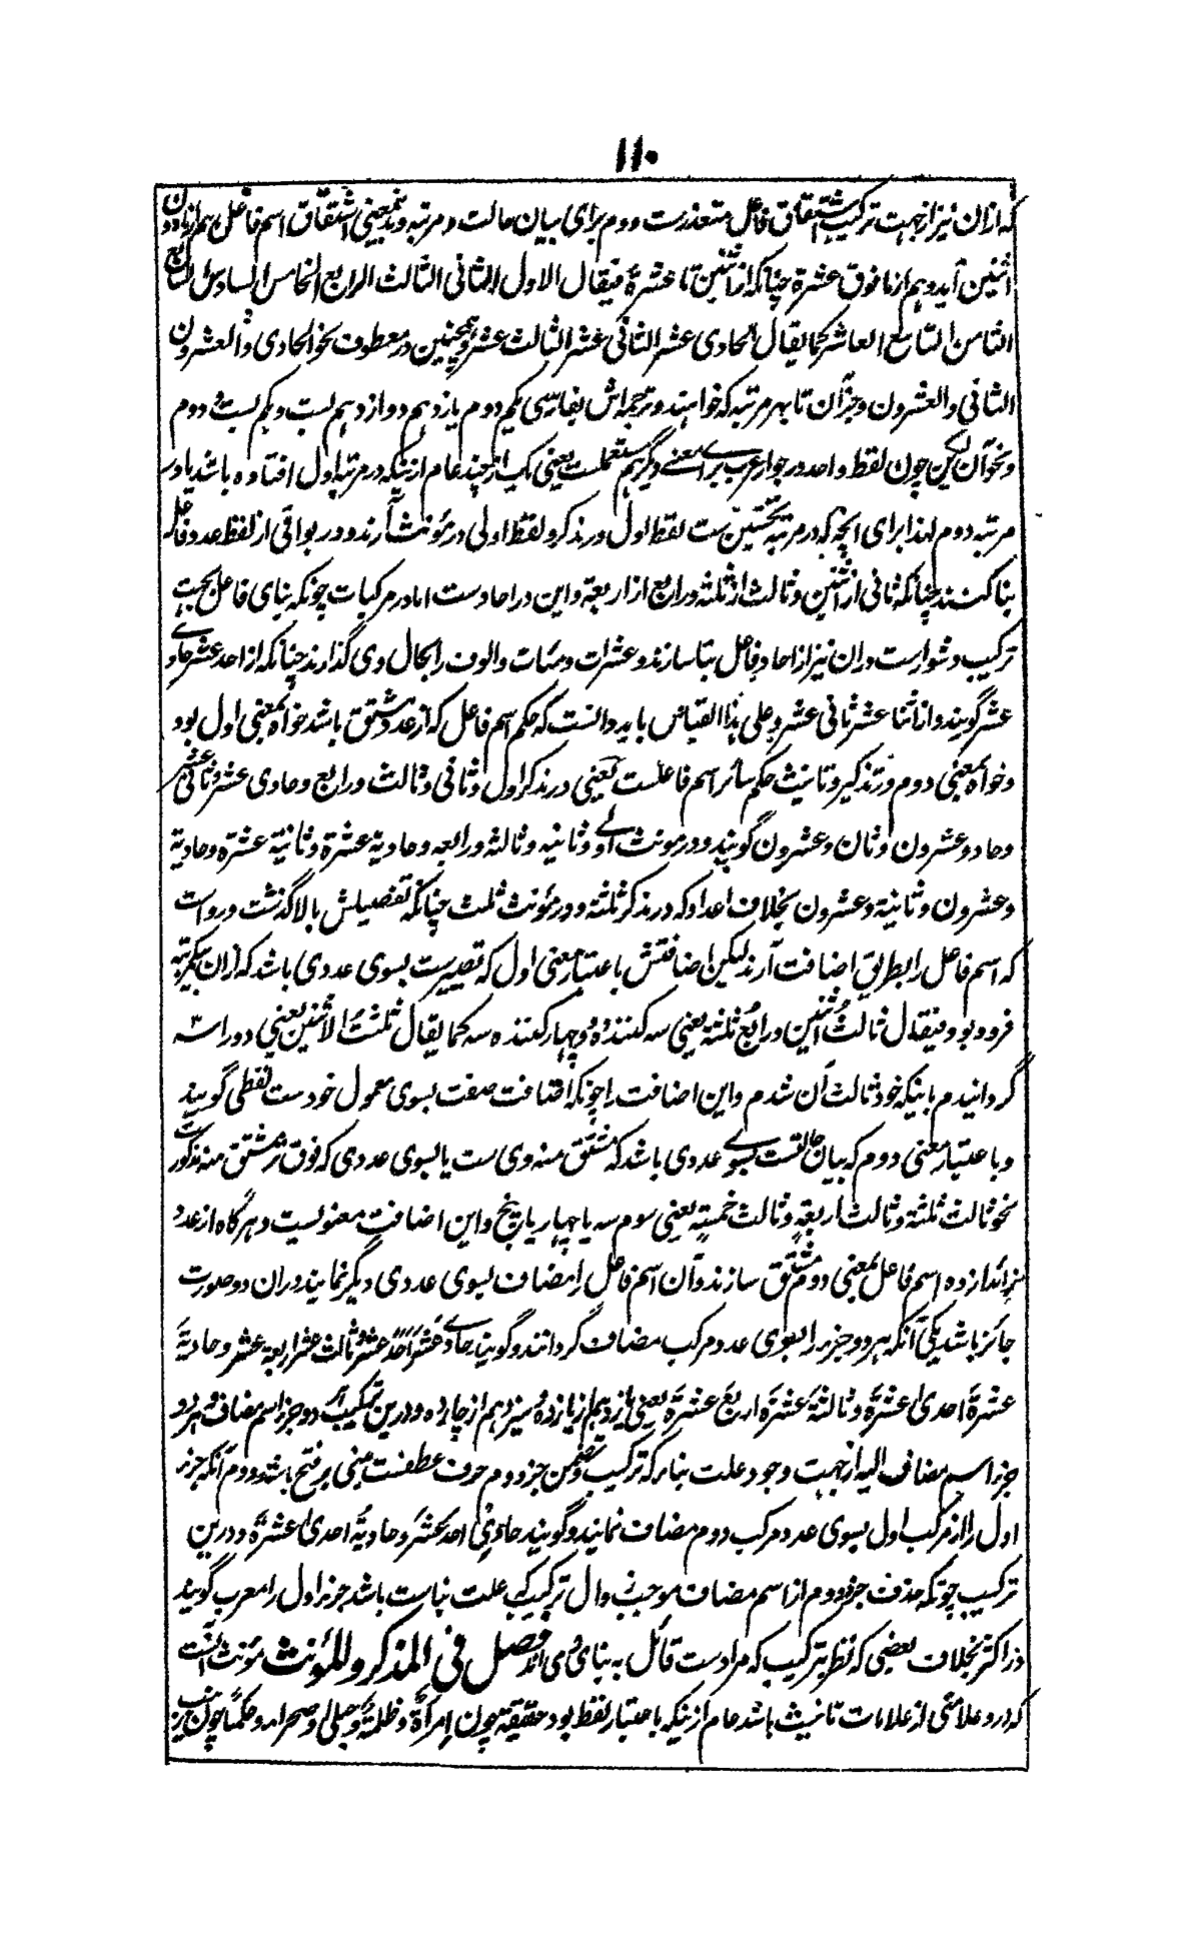 ۱۱۰
که ازان نیز از جهت ترکیب اشتقاق فاعل متعذرست ودوم برای بیان حالت و مرتبه و بدینمعنی اشتقاق اسم فاعل هم از مادون
اثنین آید وهم از مافوق عشرة چنانکه از اثنین تا عشرة فیقال الاول الثانی الثالث الرابع الخامس السادس السابع
الثامن التاسع العاشر کما یقال الحادی عشر الثانی عشر الثالث عشر وهمچنین در معطوف نحو الحادی والعشرون
الثانی والعشرون وجزآن تا بهر مرتبه که خواهند و ترجمه‌اش بفارسی یکم دوم یازدهم دوازدهم بست ویکم بست و دوم
ونحو آن لیکن چون لفظ واحد در محاوره عرب برای معنی دیگر هم مستعملست یعنی یک از چند عام ازینکه در مرتبه اول افتاده باشد یا در
مرتبه دوم لهذا برای انچه که در مرتبه نخستین ست لفظ اول در مذکر ولفظ اولی در مؤنث آرند و در بواقی از لفظ عدد فاعل
بنا کنند چنانکه ثانی از اثنین وثالث از ثلثه ورابع از اربعة واین در احادست اما در مرکبات چونکه بنای فاعل بجهت
ترکیب دشوارست دران نیز از احاد فاعل بنا سازند وعشرات ومئات والوف را بحال وی گذارند چنانکه از احد عشر حادی
عشر گویند واز اثنا عشر ثانی عشر وعلی هذا القیاس باید دانست که حکم اسم فاعل که از عدد مشتق باشد خواه بمعنی اول بود
وخواه بمعنی دوم در تذکیر وتانیث حکم سائر اسم فاعلست یعنی در مذکر اول وثانی وثالث ورابع وحادی عشر وثانی عشر
وحاد وعشرون وثان وعشرون گویند ودر مونث اولی وثانیه وثالثة ورابعه وحادیة عشرة وثانیة عشرة وحادیة
وعشرون وثانیة وعشرون بخلاف اعداد که در مذکر ثلثة ودر مؤنث ثلث چنانکه تفصیلش بالا گذشت ورواست
که اسم فاعل را بطریق اضافت آرند لیکن اضافتش باعتبار معنی اول که تصییرست بسوی عددی باشد که ازان بیکمرتبه
فرود بود فیقال ثالث اثنین ورابع ثلثة یعنی سه کننده دو وچهار کننده سه کما یقال ثلثت الاثنین یعنی دو را سه
گردانیدم باینکه خود ثالث آن شدم واین اضافت را چونکه اضافت صفت بسوی معمول خودست لفظی گویند
وباعتبار معنی دوم که بیان حالتست بسوی عددی باشد که مشتق منه وی ست یا بسوی عددی که فوق مشتق منه مذکورست
نحو ثالث ثلثة وثالث اربعة وثالث خمسة یعنی سوم سه یا چهار یا پنج واین اضافت معنویست وهرگاه از عدد
زائد از ده اسم فاعل بمعنی دوم مشتق سازند وآن اسم فاعل را مضاف بسوی عددی دیگر نمایند دران دو صورت
جائز باشد یکی آنکه هر دو جزء را بسوی عدد مرکب مضاف گردانند وگویند حادی عشر احد عشر وثالث عشر اربعة عشر وحادیة
عشرة احدی عشرة وثالثة عشرة اربع عشرة یعنی یازدهم از یازده و سیزدهم از چارده ودرین ترکیب هر دو جزء اسم مضاف وهر دو
جزء اسم مضاف الیه از جهت وجود علت بنا که ترکیب وتضمن جزء دوم حرف عطفست مبنی بر فتح باشد ودوم آنکه جزء
اول را از مرکب اول بسوی عدد مرکب دوم مضاف نمایند وگویند حادی احد عشر وحادیة احدی عشرة ودرین
ترکیب چونکه حذف جزء دوم از اسم مضاف موجب زوال ترکیب که علت بناست باشد جزء اول را معرب گویند
در اکثر بخلاف بعضی که نظر بترکیب که مرادست قائل به بنای وی اند فصل فی المذکر والمؤنث مؤنث آنست
که درو علامتی از علامات تانیث باشد عام ازینکه باعتبار لفظ بود حقیقة چون امرأة وظلمة وحبلی وصحراء وحکما چون زینب